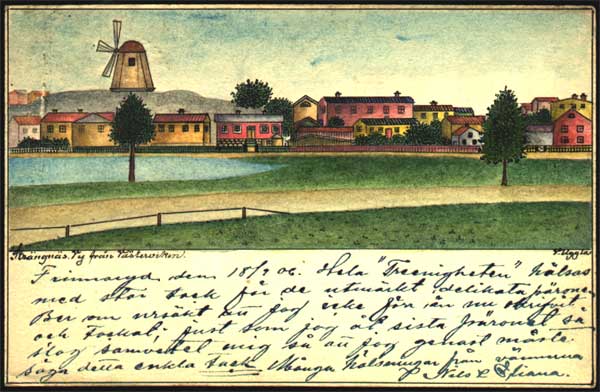 Strängnäs. Vy från Västerviken.
V. Uggla
Frinnaryd den 18/9 06. Hela "Treenigheten" hälsar
med stor tack för de utmärkt delikata päronen.
Ber om ursäkt att jag icke för än nu skrifvit
och tackat, just som jag åt sista päronet så
slog samvetet mig så att jag genast måste
säga detta enkla tack. Många hälsningar från vännerna
Nils &